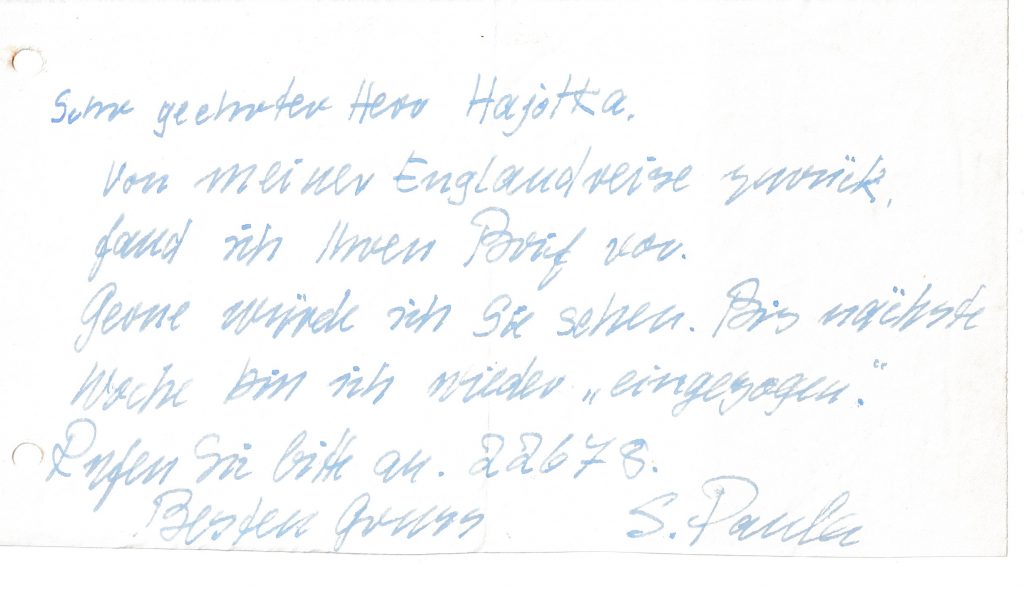 Sehr geehrter Herr Hajottka.
Von meiner Englandreise zurück,
fand ich Ihren Brief vor.
Gerne würde ich Sie sehen. Bis nächste
Woche bin ich wieder „eingezogen."
Rufen Sie bitte an. 22678.
Besten Gruss S. Paula